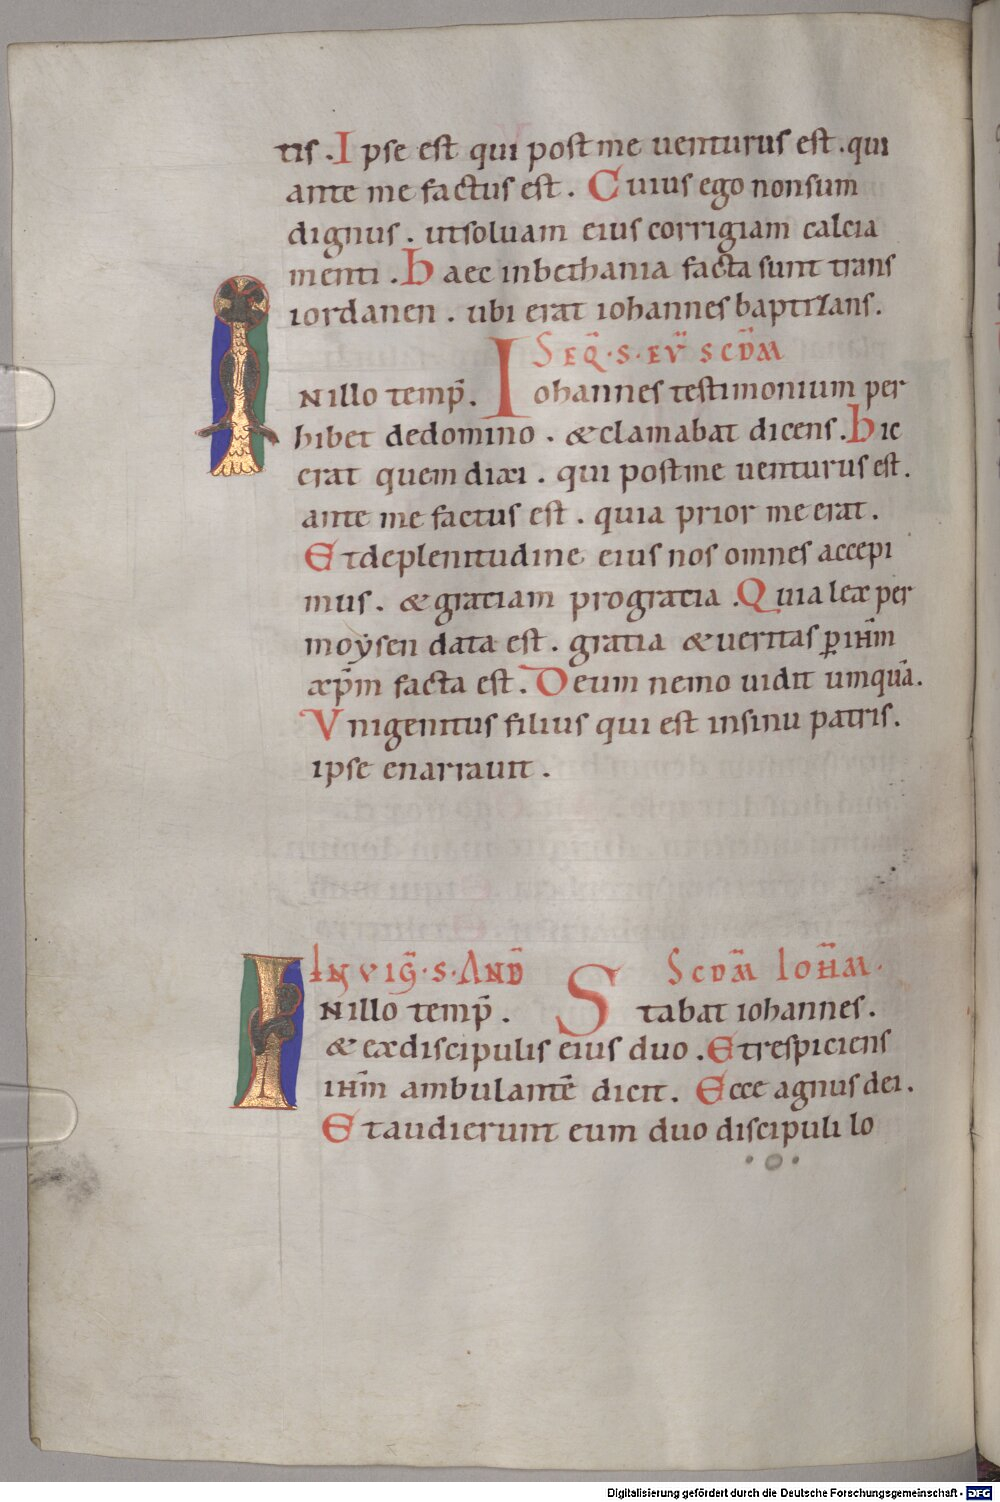 tis. Ipse est qui post me uenturus est. qui
ante me factus est. Cuius ego nonsum
dignus. utsoluam eius corrigiam calcia
menti. Haec inbethania facta sunt trans
iordanen. ubi erat iohannes baptizans.
SEQ̅·S·EV̅ SCD̅M
INillo temp̅. Iohannes testimonium per
hibet dedomino. &clamabat dicens. Hic
erat quem dixi. qui postme uenturus est.
ante me factus est. quia prior me erat.
Etdeplenitudine eius nos omnes accepi
mus. &gratiam progratia. Quia lex per
moẏsen data est. gratia &ueritas ꝑ ih̅m
xp̅m facta est. Deum nemo uidit umquā.
Vnigenitus filius qui est insinu patris.
ipse enarrauit.
IN VIG̅·S·AND̅ SCD̅M IOH̅M·
INillo temp̅. Stabat iohannes.
& exdiscipulis eius duo. Etrespiciens
ih̅m ambulantē dicit. Ecce agnus dei.
Etaudierunt eum duo discipuli lo
Digitalisierung gefördert durch die Deutsche Forschungsgemeinschaft - DFG